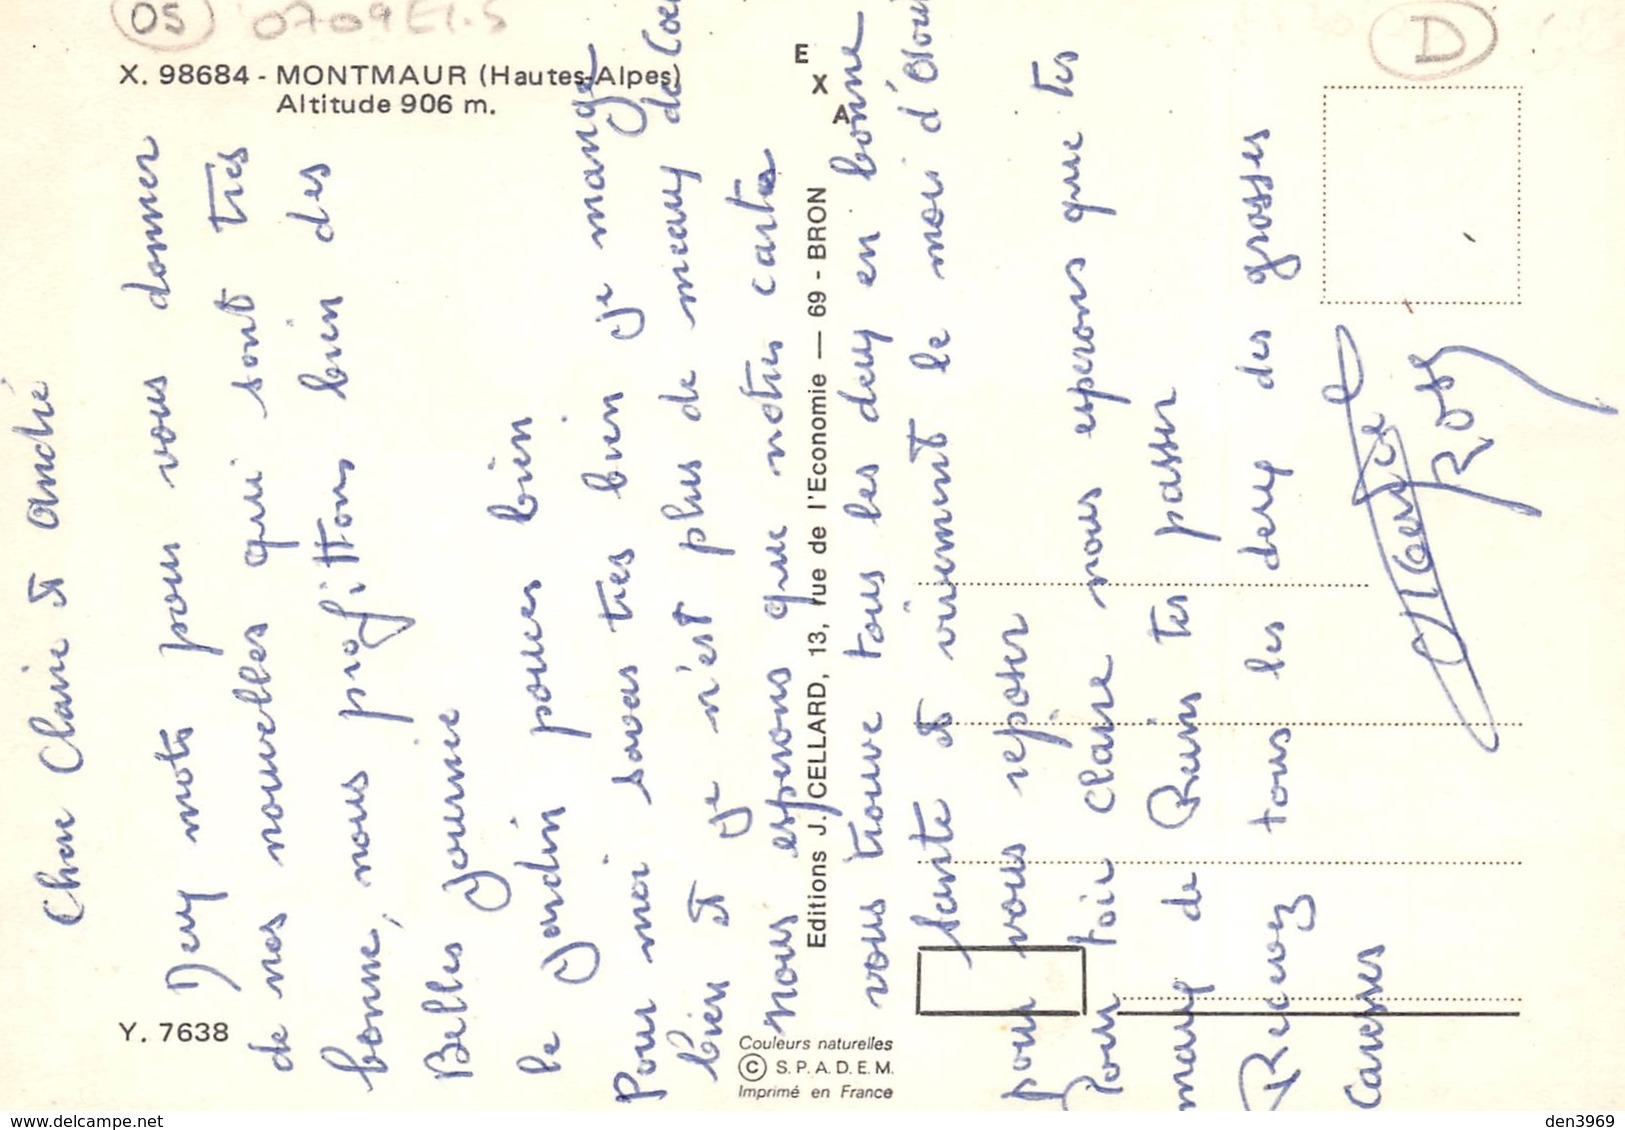 OS
0709E1.5
D
X. 98684 - MONTMAUR (Hautes-Alpes)
Altitude 906 m.
E
X
A
Editions J. CELLARD, 13, rue de l'Economie — 69 - BRON
Y. 7638
Couleurs naturelles
© S.P.A.D.E.M.
Imprimé en France
Cher Claire et andré
Deux mots pour vous donner
de nos nouvelles qui sont tres
bonne, nous profittons bien des
Belles journie
le jardin pousse bien
Pour moi savas tres bien je mange
bien et je n'est plus de meaux de Coeu
nous esperons que notres carte
vous trouve tous les deux en bonne
sante et vivement le moi d'Aout
pour vous reposer
Pour toir claire nous esperons que tes
maux de Reins tes passer
Recevez tous les deux des grosses
Caresses
Rosy
www.delcampe.net
den3969